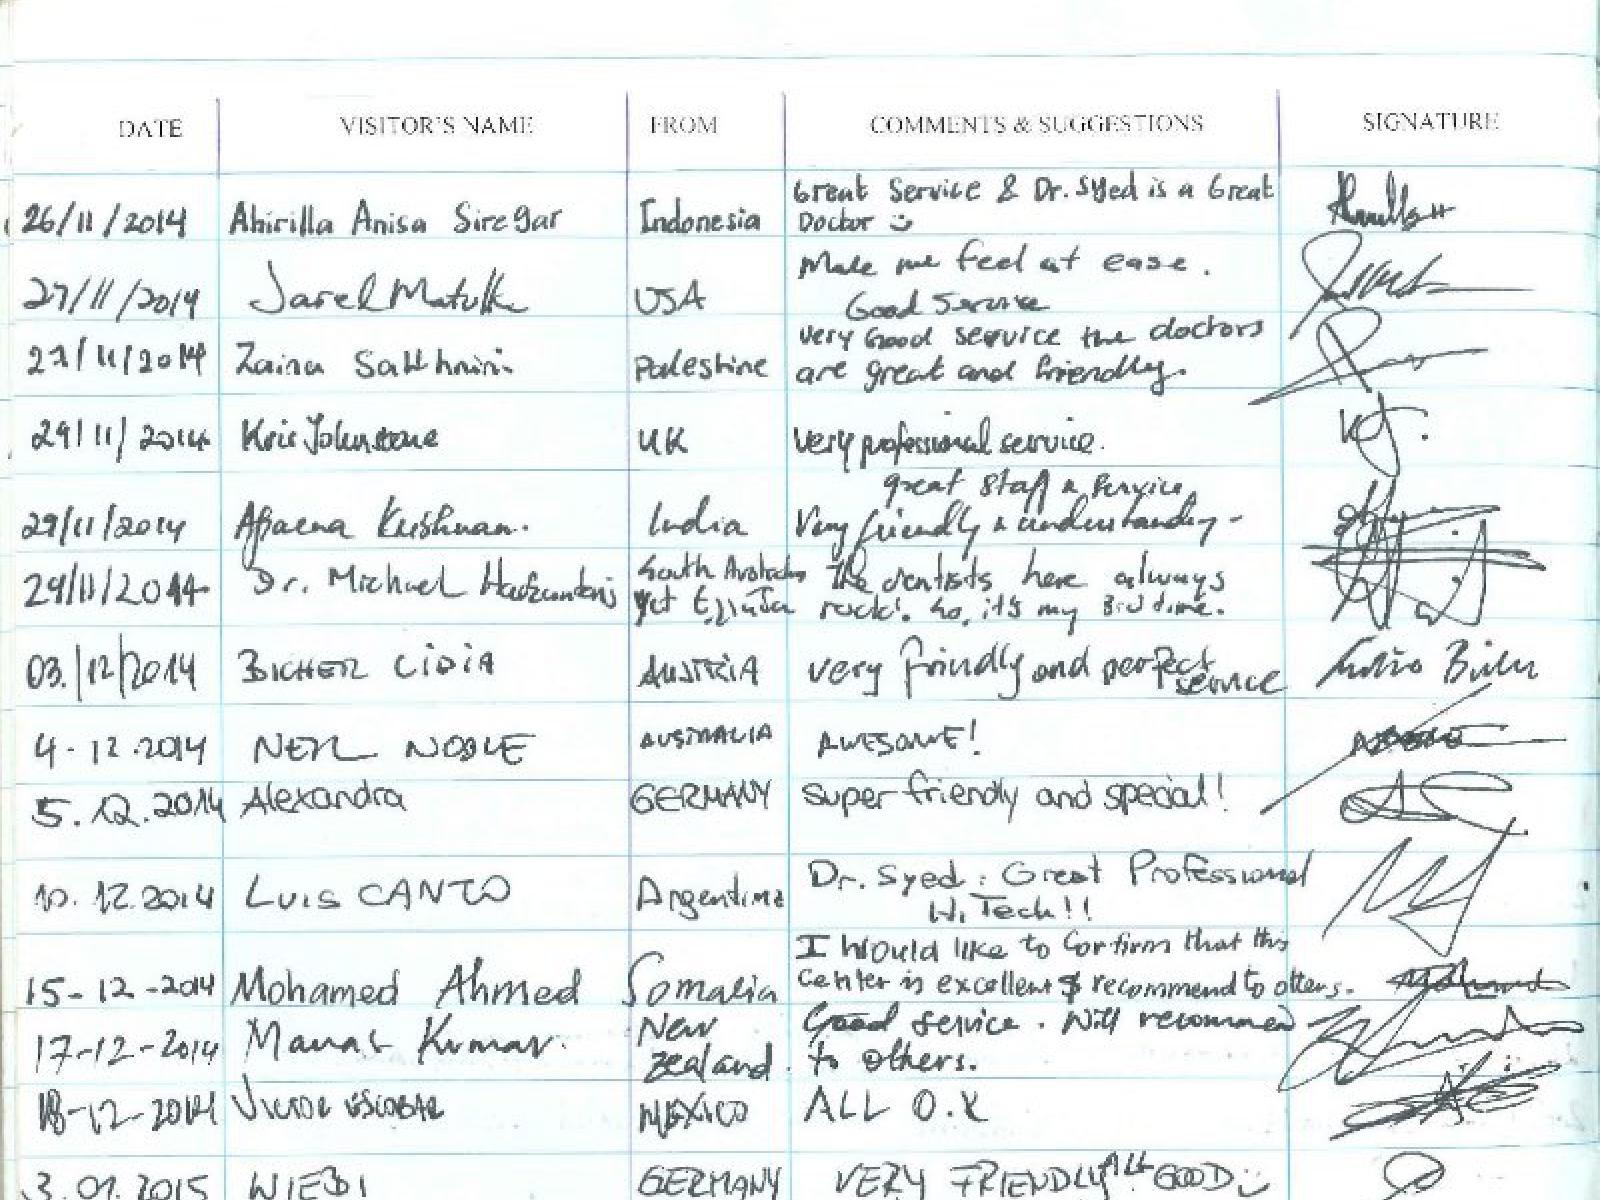 DATE VISITOR'S NAME FROM COMMENTS & SUGGESTIONS SIGNATURE
Great Service & Dr. Syed is a Great
26/11/2014 Abirilla Anisa Siregar Indonesia Doctor
Make me feel at ease.
27/11/2014 Jarel USA Good Service
very Good service the doctors
27/11/2014 Zaina Palestine are great and friendly.
29/11/2014 Kris Johnstone UK very professional service. KJ.
great staff & service
29/11/2014 Krishnan. India Very friendly & understanding -
South The dentists here always
29/11/2014 Dr. Michael yet rock! So, it's my 3rd time.
03/12/2014 BICHER LIDIA AUSTRIA very friendly and perfect
service
4-12.2014 NEIL NOBLE AUSTRALIA AWESOME!
5.12.2014 Alexandra GERMANY super friendly and special!
Dr. Syed: Great Professional
10.12.2014 LUIS CANTO Argentina Hi Tech!!
I would like to confirm that this
15-12-2014 Mohamed Ahmed Somalia Center is excellent & recommend to others.
New Good service. Will recommend
17-12-2014 Manas Kumar. Zealand. to others.
18-12-2014 VICTOR ESCOBAR MEXICO ALL O.K
3.01.2015 WIEBI GERMANY VERY FRIENDLY ALL GOOD